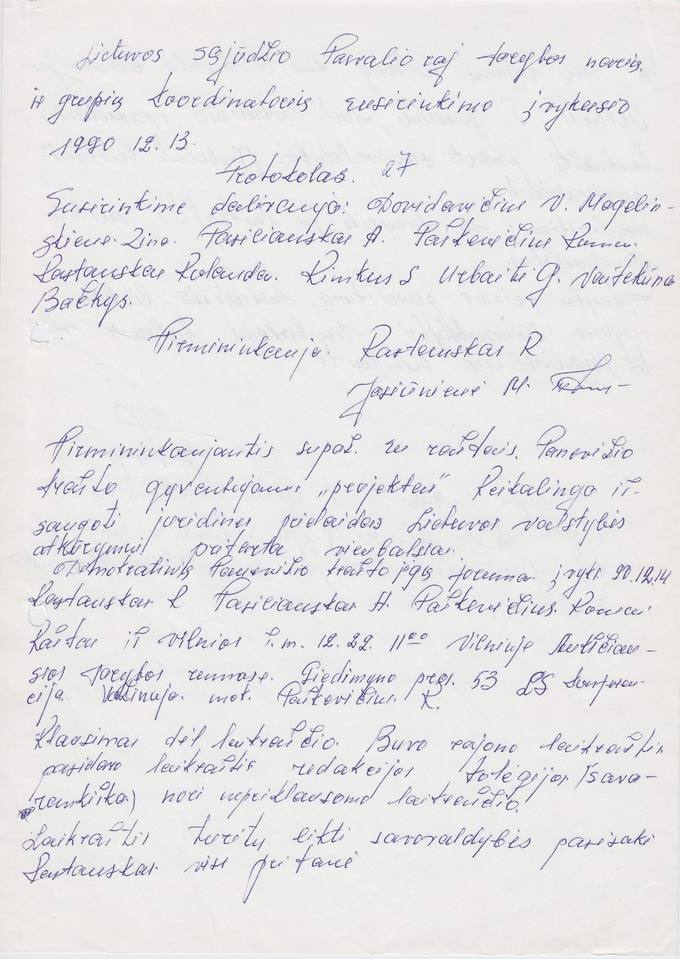 Lietuvos sąjūdžio Pasvalio raj tarybos narių,
ir grupių koordinatorių susirinkimo įvykusio
1990 12. 13.
Protokolas. 27
Susirinkime dalivauja: Dovidavičius V. Mogelin-
skienė. Zina. Pasiliauskas A. Paškevičius Romu.
Rastauskas Rolandas. Rimkus S Urbaitė G. Vaitekūna
Bačkys.
Pirmininkauja. Rastauskas R
Jasiūnienė M.
Pirmininkaujantis supaž. su raštais. Panevėžio
krašto gyventojams „projektas" Reikalinga iš-
saugoti juridines prielaidas Lietuvos valstybės
atkūrimui pritarta vienbalsiai.
Demokratinių Panevėžio krašto jėgų forumas įvyks. 90.12.14
Rastauskas R Pasiliauskas A. Paškevičius. Romas
Raštas iš Vilniaus š.m. 12.22. 11⁰⁰ Vilniuje Aukščiau-
sios tarybos rūmuose. Giedimyno pros. 53 LS konferen-
cija. Važiuoja. mok. Paškevičius. R.
Klausimas dėl laikraščio. Buvo rajono laikraštis
pasidaro laikraštis redakcijos kolegijos (sava-
rankiškas) nori nepriklausomo laikraščio.
Laikraštis turėtų likti savavaldybės pasisakė
Rastauskas visi pritarė